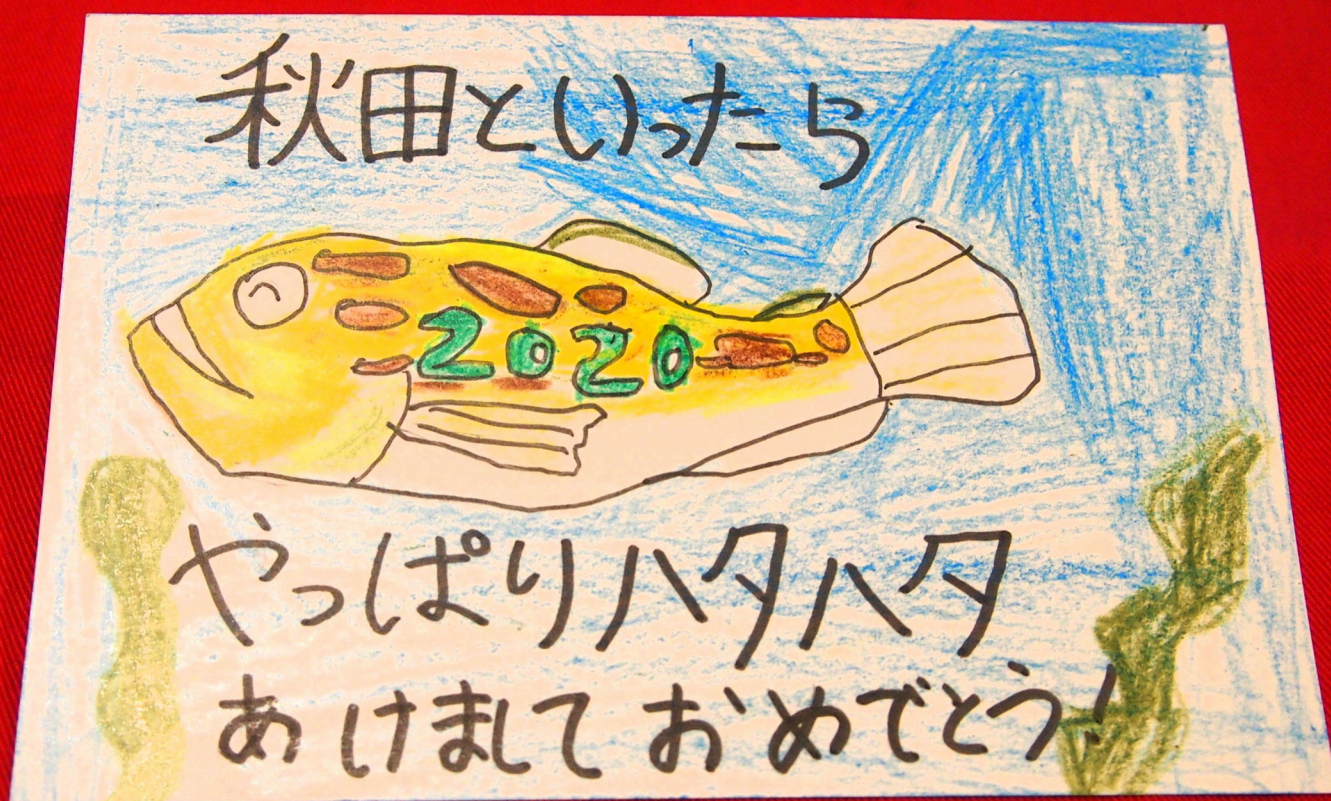 秋田といったら
2020
やっぱりハタハタ
あけましておめでとう!